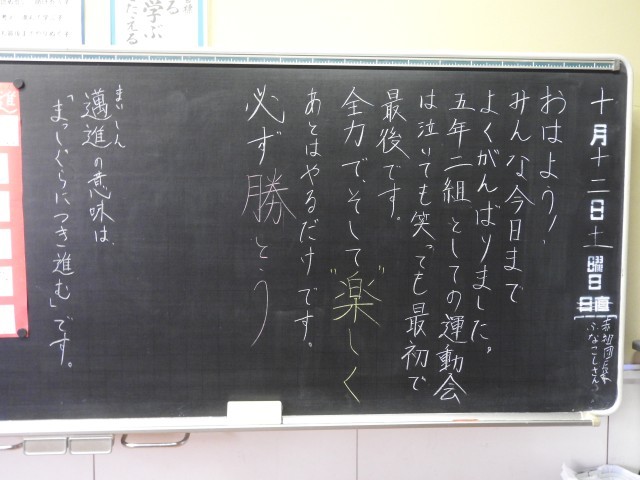 十月十二日土曜日
日直
おはよう!
みんな今日まで
よくがんばりました。
五年二組としての運動会
は泣いても笑っても最初で
最後です。
全力で、そして"楽しく"
あとはやるだけです。
必ず勝とう
まいしん
邁進の意味は、
「まっしぐらにつき進む」です。
進
る
学ぶ
たえる